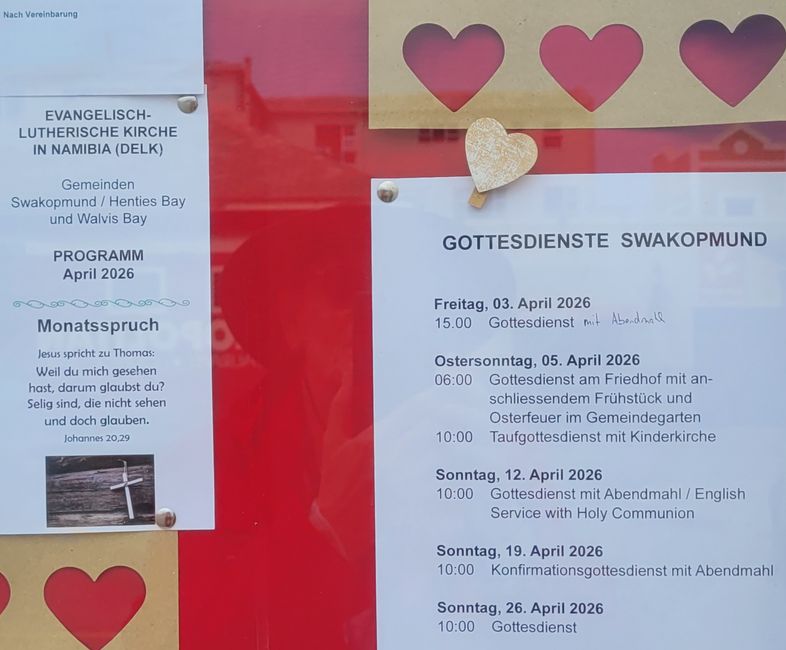 Nach Vereinbarung
EVANGELISCH-
LUTHERISCHE KIRCHE
IN NAMIBIA (DELK)
Gemeinden
Swakopmund / Henties Bay
und Walvis Bay
PROGRAMM
April 2026
Monatsspruch
Jesus spricht zu Thomas:
Weil du mich gesehen
hast, darum glaubst du?
Selig sind, die nicht sehen
und doch glauben.
Johannes 20,29
GOTTESDIENSTE SWAKOPMUND
Freitag, 03. April 2026
15.00 Gottesdienst mit Abendmall
Ostersonntag, 05. April 2026
06:00 Gottesdienst am Friedhof mit an-
schliessendem Frühstück und
Osterfeuer im Gemeindegarten
10:00 Taufgottesdienst mit Kinderkirche
Sonntag, 12. April 2026
10:00 Gottesdienst mit Abendmahl / English
Service with Holy Communion
Sonntag, 19. April 2026
10:00 Konfirmationsgottesdienst mit Abendmahl
Sonntag, 26. April 2026
10:00 Gottesdienst